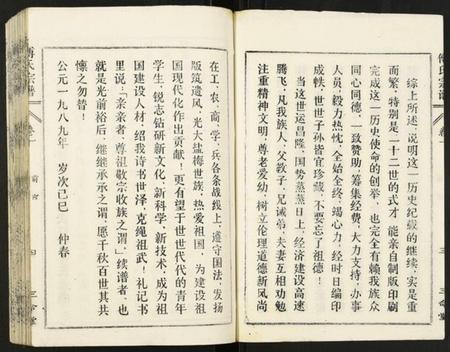 傅氏宗譜
卷一
三
三合堂
綜上所述，說明這一历史纪载的继续，实是重
而繁，特别是二十二世的式才，能亲自制版印刷
完成这一历史使命的创举，也完全有赖我族众
同心同德，一致赞助，筹集经费，大力支持，办事
人员，毅力热忱，全始全终，竭心力，经时日编印
成帙，世世子孙皆宜珍藏，不要忘了祖德！
当这世运昌隆，国势蒸蒸日上，经济建设高速
腾飞，凡我族人，父教子，兄诫弟，夫妻互相劝勉
注重精神文明，尊老爱幼，树立伦理道德新风尚
在工、农、商、学、兵各条战线上，遵守国法，发扬
版筑遗风，光大盐梅世族，热爱祖国，为建设祖
国现代化作出贡献！更有望于世世代代的青年
学生，锐志钻研新文化，新科学，新技术，成为祖
国建设人材，绍我诗书世泽，克绳祖武！礼记书
里说：「亲亲者，尊祖敬宗收族之谓」续谱者，也
就是光前裕后，继继承承之谓，愿千秋百世其共
懔之勿替！
公元一九八九年　岁次己巳　仲春
傅氏宗譜
卷一
四
三合堂